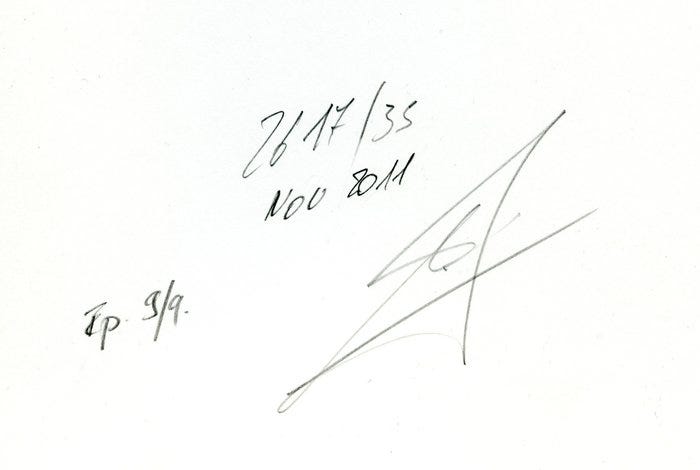 2617/35
NOV 2011
Ep. 9/9.